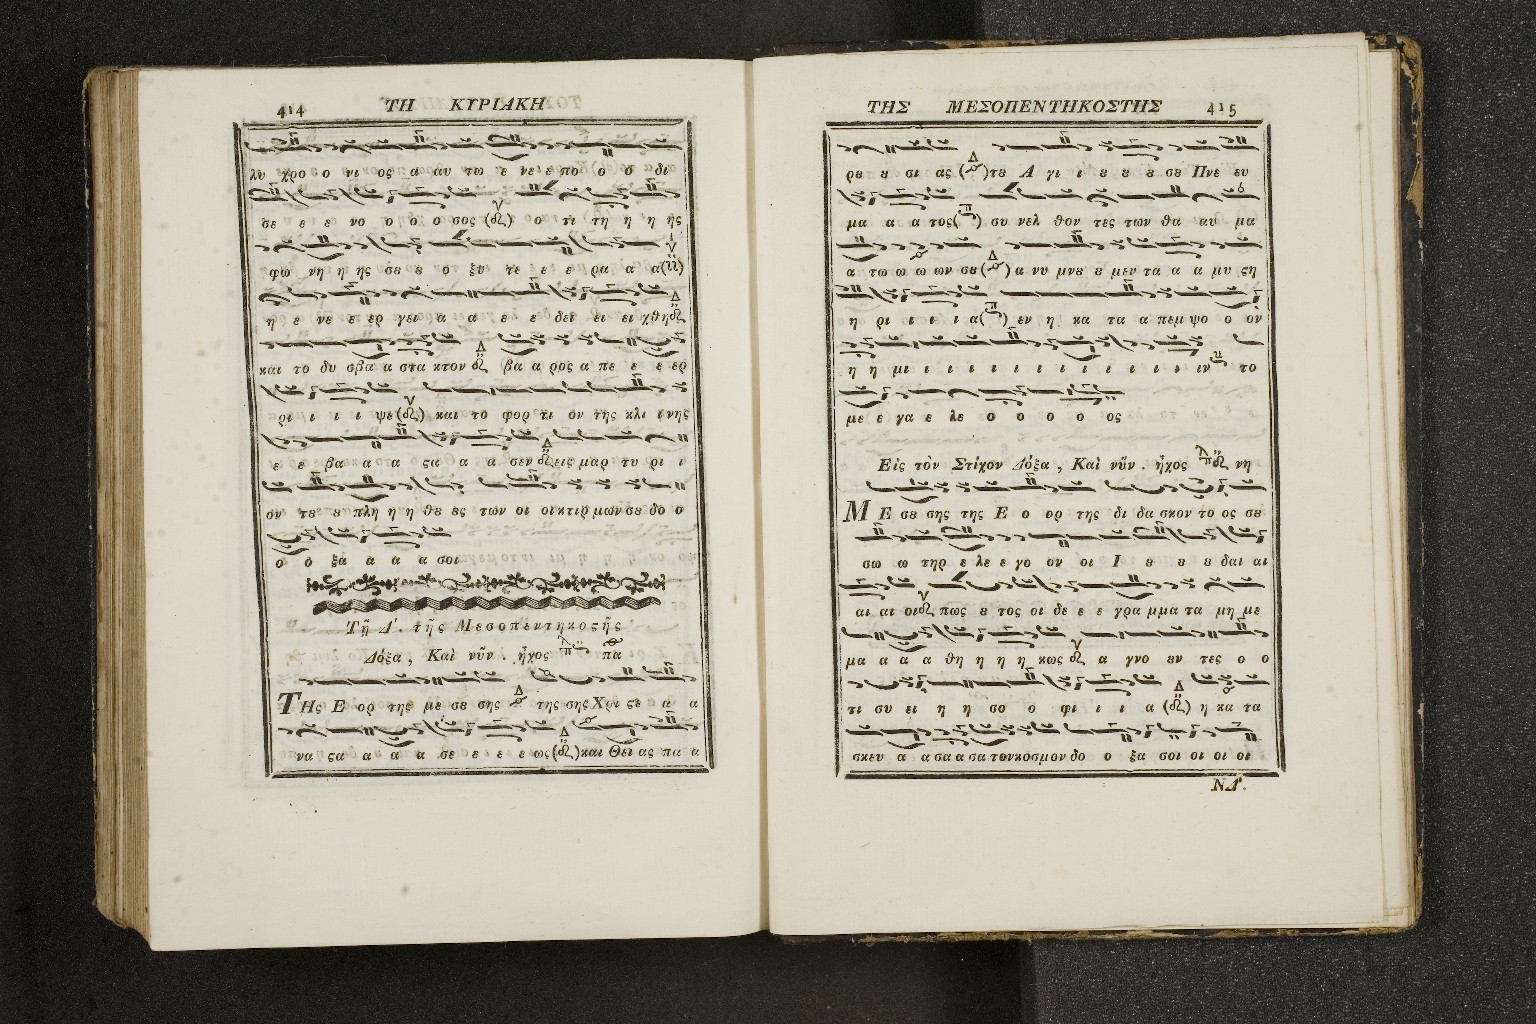 414
ΤΗ ΚΥΡΙΑΚΗ
λυ χρο ο νι ος α αυ τω ε νε ε πο ο ο δι
σε ε ε νο ο ο ο σος (δι) ο τι τη η η ῆς
φω νη η ης σ8 8 ο ξυ τε ε ε ε ρα α α(νη)
η ε νε ε ερ γει α α ε ε δει ει ει χθηδι
και το δυ σβα α στα κτον δι βα α ρος α πε ε ε ερ
ρι ι ι ι ψε(δι) και το φορ τι ον τῆς κλι ι νης
ε ε βα α α α ϛα α α σεν δι εις μαρ τυ ρι ι
ον τ8 8 πλη η η θ8 8ς των οι οικτιρ μων σ8 δο ο
ο ο ξα α α α σοι
Τῇ Δ'. τῆς Μεσοπεντηκοϛῆς
Δόξα, Καὶ νῦν. ἦχος πλ δ πα
ΤΗς Ε ορ της με σ8 σης Δ της σης Χρι ϛε α α
να ϛα α α α σε ε ε ε ε ως(δι)και Θει ας πα α
ΤΗΣ ΜΕΣΟΠΕΝΤΗΚΟΣΤΗΣ
415
ρ8 8 σι ας (Δ)τ8 Α γι ι 8 8 8 σ8 Πνε ευ
μα α α τος(π) συ νελ θον τες των θα αυ μα
α τω ω ω ων σ8(Δ) α νυ μν8 8 μεν τα α α μυ ϛη
η ρι ι ι ι α(π) εν η κα τα α πεμψο ο ον
η η μι ι ι ι ι ι ι ι ι ι ι ι ι ιν το
με ε γα ε λε ο ο ο ο ος
Εἰς τὸν Στίχον Δόξα, Καὶ νῦν. ἦχος πλ δ νη
ΜΕ σ8 σης της Ε ο ορ της δι δα σκον το ος σ8
σω ω τηρ ε λε ε γο ον οι Ι 8 8 8 δαι αι
αι αι οιδι πως 8 τος οι δε ε ε γρα μμα τα μη με
μα α α α θη η η η κως δι α γνο 8ν τες ο ο
τι συ ει η η σο ο φι ι ι α (δι) η κα τα
σκευ α α σα α σα τονκοσμον δο ο ξα σοι οι οι οι
ΝΔ'.